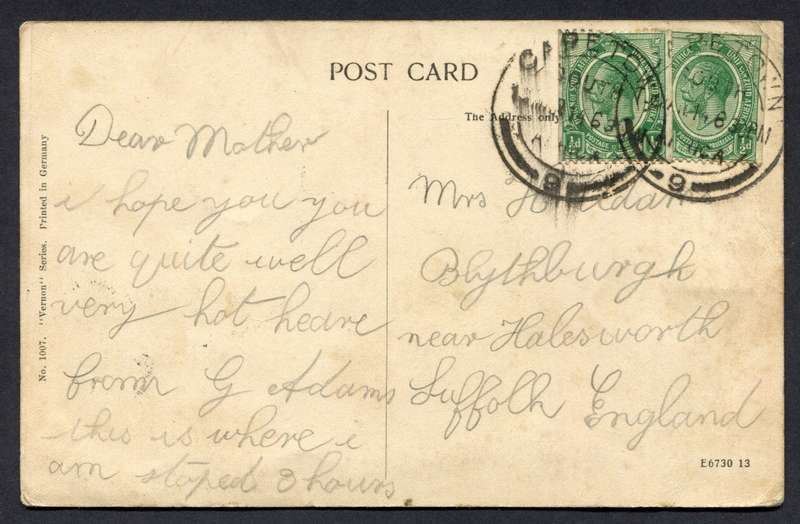 POST CARD
The Address only
CAPE TOWN
9
9
½d
½d
Dear Mother
i hope you you
are quite well
very hot heare
from G Adams
this is where i
am stoped 3 hours
Mrs
Blythburgh
near Halesworth
Suffolk England
No. 1007. "Vernon" Series. Printed in Germany
E6730 13